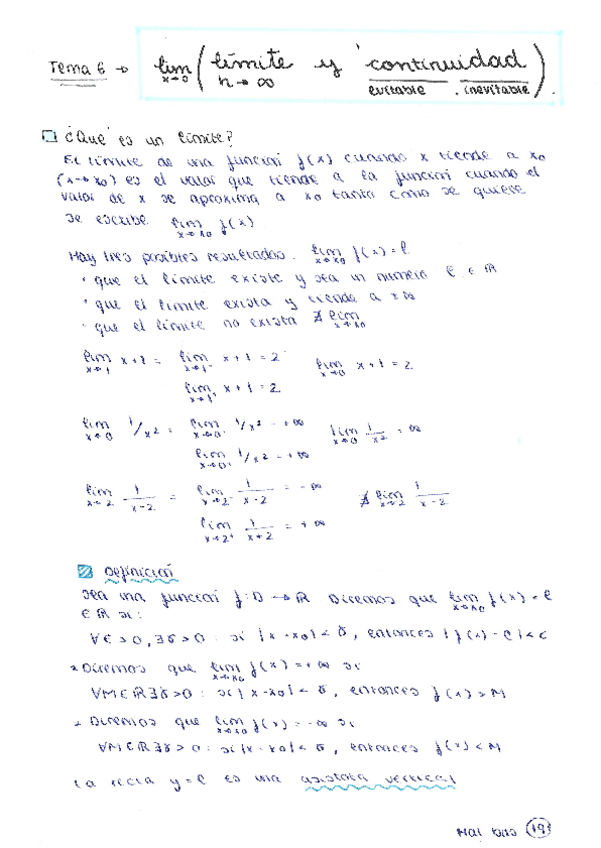 Tema 6 → lim x→0 ( límite y continuidad )
n→∞ evitable . inevitable
¿Qué es un límite?
El límite de una función f(x) cuando x tiende a x0
(x→x0) es el valor que tiende a la función cuando el
valor de x se aproxima a x0 tanto como se quiere
se escribe lim x→x0 f(x)
Hay tres posibles resultados. lim x→x0 f(x) = l
· que el límite existe y sea un numero l ∈ ℝ
· que el limite exista y tienda a ±∞
· que el límite no exista ∄ lim x→x0
lim x→1 x+1 = lim x→1⁻ x+1 = 2 lim x→0 x+1 = 2
lim x→1⁺ x+1 = 2
lim x→0 1/x² = lim x→0⁻ 1/x² = +∞ lim x→0 1/x² = ∞
lim x→0⁺ 1/x² = +∞
lim x→2 1/x-2 = lim x→2⁻ 1/x-2 = -∞ ∄ lim x→2 1/x-2
lim x→2⁺ 1/x+2 = +∞
Definición
Sea una función f: D → ℝ Diremos que lim x→x0 f(x) = l
∈ ℝ si:
∀ε>0, ∃δ>0 : si |x-x0| < δ, entonces |f(x)-l|<ε
Diremos que lim x→x0 f(x) = +∞ si
∀M∈ℝ ∃δ>0 : si |x-x0| < δ, entonces f(x) > M
Diremos que lim x→x0 f(x) = -∞ si
∀M∈ℝ ∃δ>0 : si |x-x0| < δ, entonces f(x) < M
La recta y=l es una asíntota vertical
19